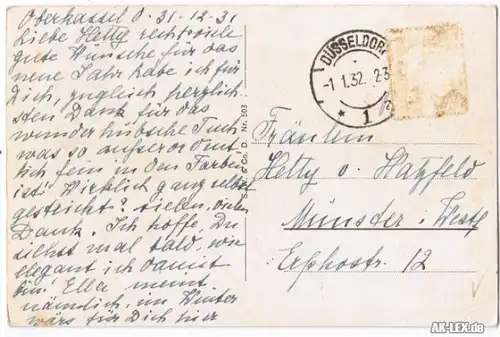 Oberkassel d. 31.12.31
Liebe Hetty recht viele
gute Wünsche für das
neue Jahr habe ich für
Dich, zugleich herzlich-
sten Dank für das
wunderhübsche Tuch
was so ausserordent
lich fein in den Farben
ist. Wirklich ganz selbst
gestrickt? vielen, vielen
Dank. Ich hoffe, Du
siehst mal bald, wie
elegant ich damit
bin. Ella meint
nämlich, im Winter
wärs für Dich hier
& Co. D. Nr. 503
DÜSSELDORF
-1.1.32. 23
* 1
Fräulein
Hetty v. Hatzfeld
Münster i. Westf
Erphostr. 12
AK-LEX.de